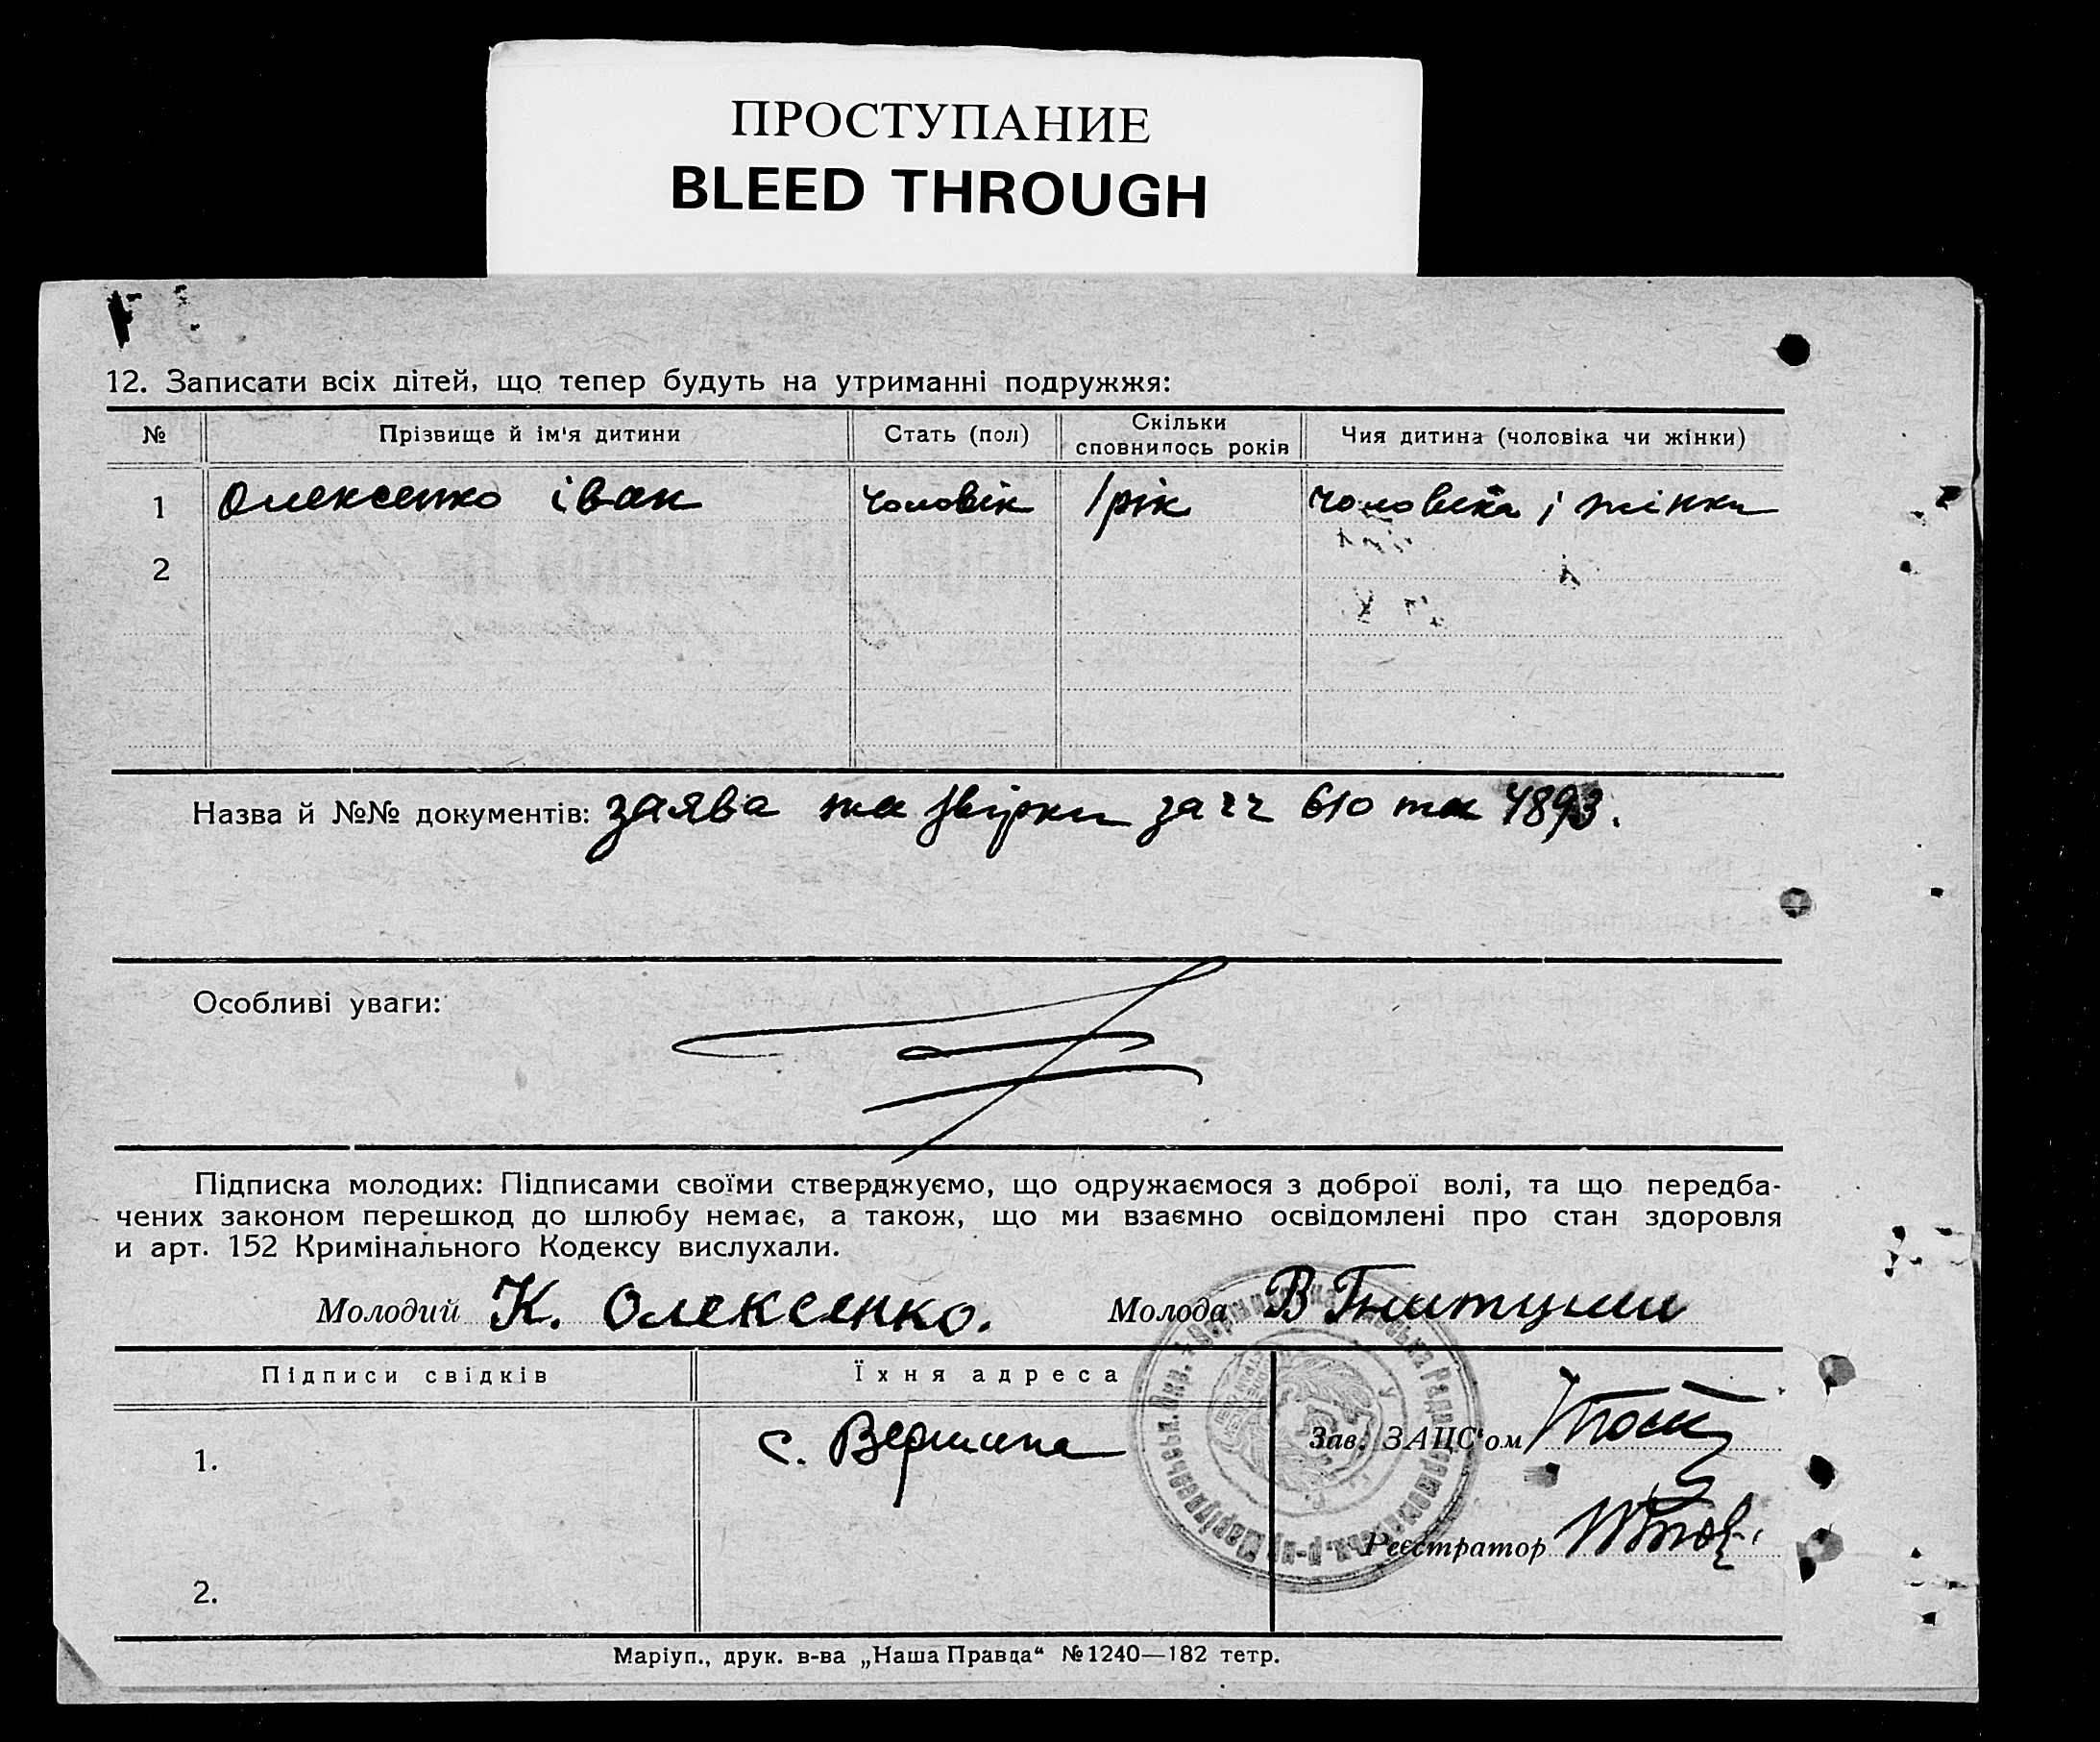 ПРОСТУПАНИЕ
BLEED THROUGH
12. Записати всіх дітей, що тепер будуть на утриманні подружжя:
№ Прізвище й ім'я дитини Стать (пол) Скільки сповнилось років Чия дитина (чоловіка чи жінки)
1 Олексенко іван чоловік 1 рік чоловіка і жінки
2
Назва й №№ документів: заява та звірки за чч 610 та 4893.
Особливі уваги:
Підписка молодих: Підписами своїми стверджуємо, що одружаємося з доброї волі, та що передба-
чених законом перешкод до шлюбу немає, а також, що ми взаємно освідомлені про стан здоровля
и арт. 152 Кримінального Кодексу вислухали.
Молодий К. Олексенко. Молода В
Підписи свідків Їхня адреса
1. с. Вершина Зав. ЗАЦС'ом
Реєстратор
2.
Маріуп., друк. в-ва „Наша Правда“ №1240—182 тетр.